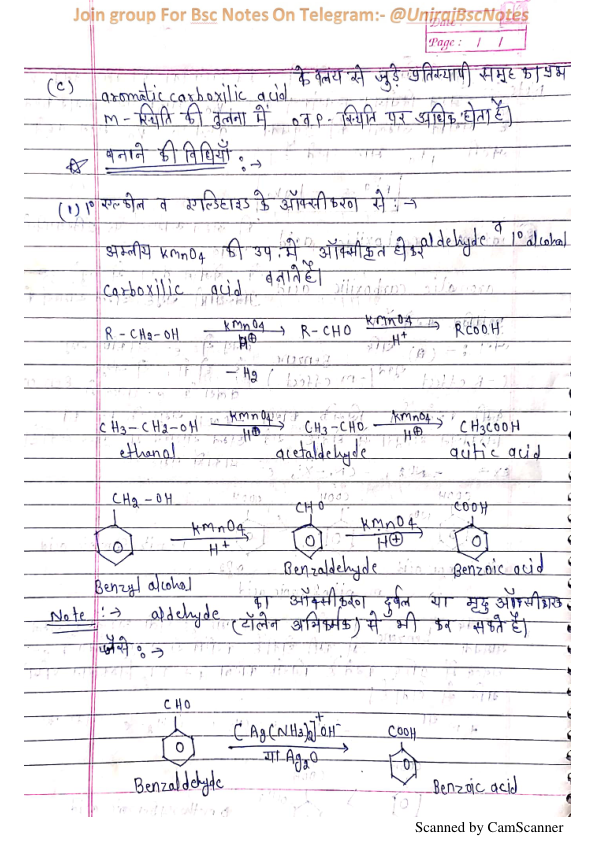 Join group For Bsc Notes On Telegram:- @UnirajBscNotes
Date :
Page : / /
(c) aromatic carboxilic acid के वलय से जुड़े प्रतिस्थापी समूह का प्रभाव
m - स्थिति की तुलना में o व p - स्थिति पर अधिक होता है।
बनाने की विधियाँ :→
(1) 1° एल्कोहल व एल्डिहाइड के ऑक्सीकरण से :→
अम्लीय KMnO4 की उप. में ऑक्सीकृत होकर aldehyde व 1° alcohol
carboxilic acid बनाते है।
R - CH2 - OH KMnO4 H⊕ → R - CHO KMnO4 H+ → RCOOH
- H2
CH3 - CH2 - OH KMnO4 H⊕ → CH3 - CHO KMnO4 H⊕ → CH3COOH
ethanol acetaldehyde acitic acid
CH2 - OH CHO COOH
KMnO4 H+ → KMnO4 H⊕ →
Benzyl alcohol Benzaldehyde Benzoic acid
Note :→ aldehyde का ऑक्सीकरण दुर्बल या मृदु ऑक्सीकारक
(टॉलेन अभिकर्मक) से भी कर सकते है।
जैसे :→
CHO COOH
[Ag(NH3)2]+OH- या Ag2O →
Benzaldehyde Benzoic acid
Scanned by CamScanner